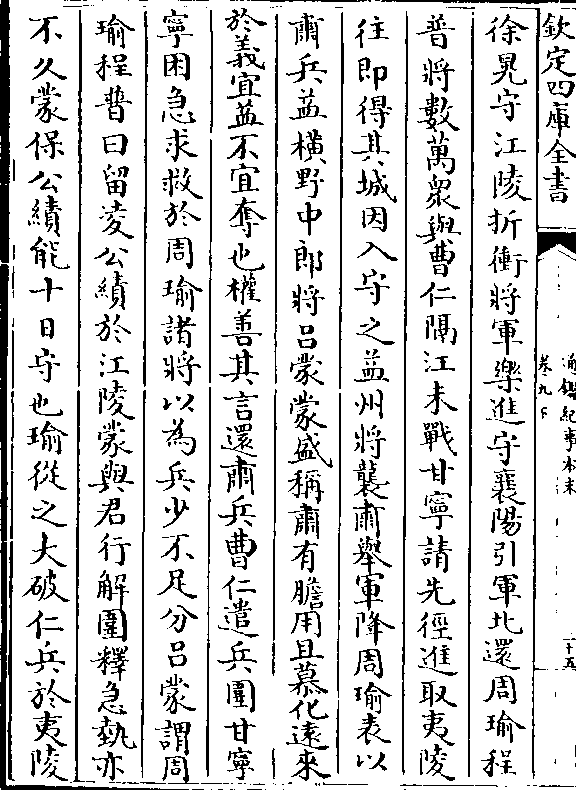 欽定四庫全書
通鑑紀事本末
卷九下
十五
徐晃守江陵折衝將軍樂進守襄陽引軍北還周瑜程
普將數萬衆與曹仁隔江未戰甘寧請先徑進取夷陵
往即得其城因入守之益州將襲肅舉軍降周瑜表以
肅兵益橫野中郎將呂蒙蒙盛稱肅有膽用且慕化遠來
於義宜益不宜奪也權善其言還肅兵曹仁遣兵圍甘寧
寧困急求救於周瑜諸將以為兵少不足分呂蒙謂周
瑜程普曰留凌公績於江陵蒙與君行解圍釋急埶亦
不久蒙保公績能十日守也瑜從之大破仁兵於夷陵